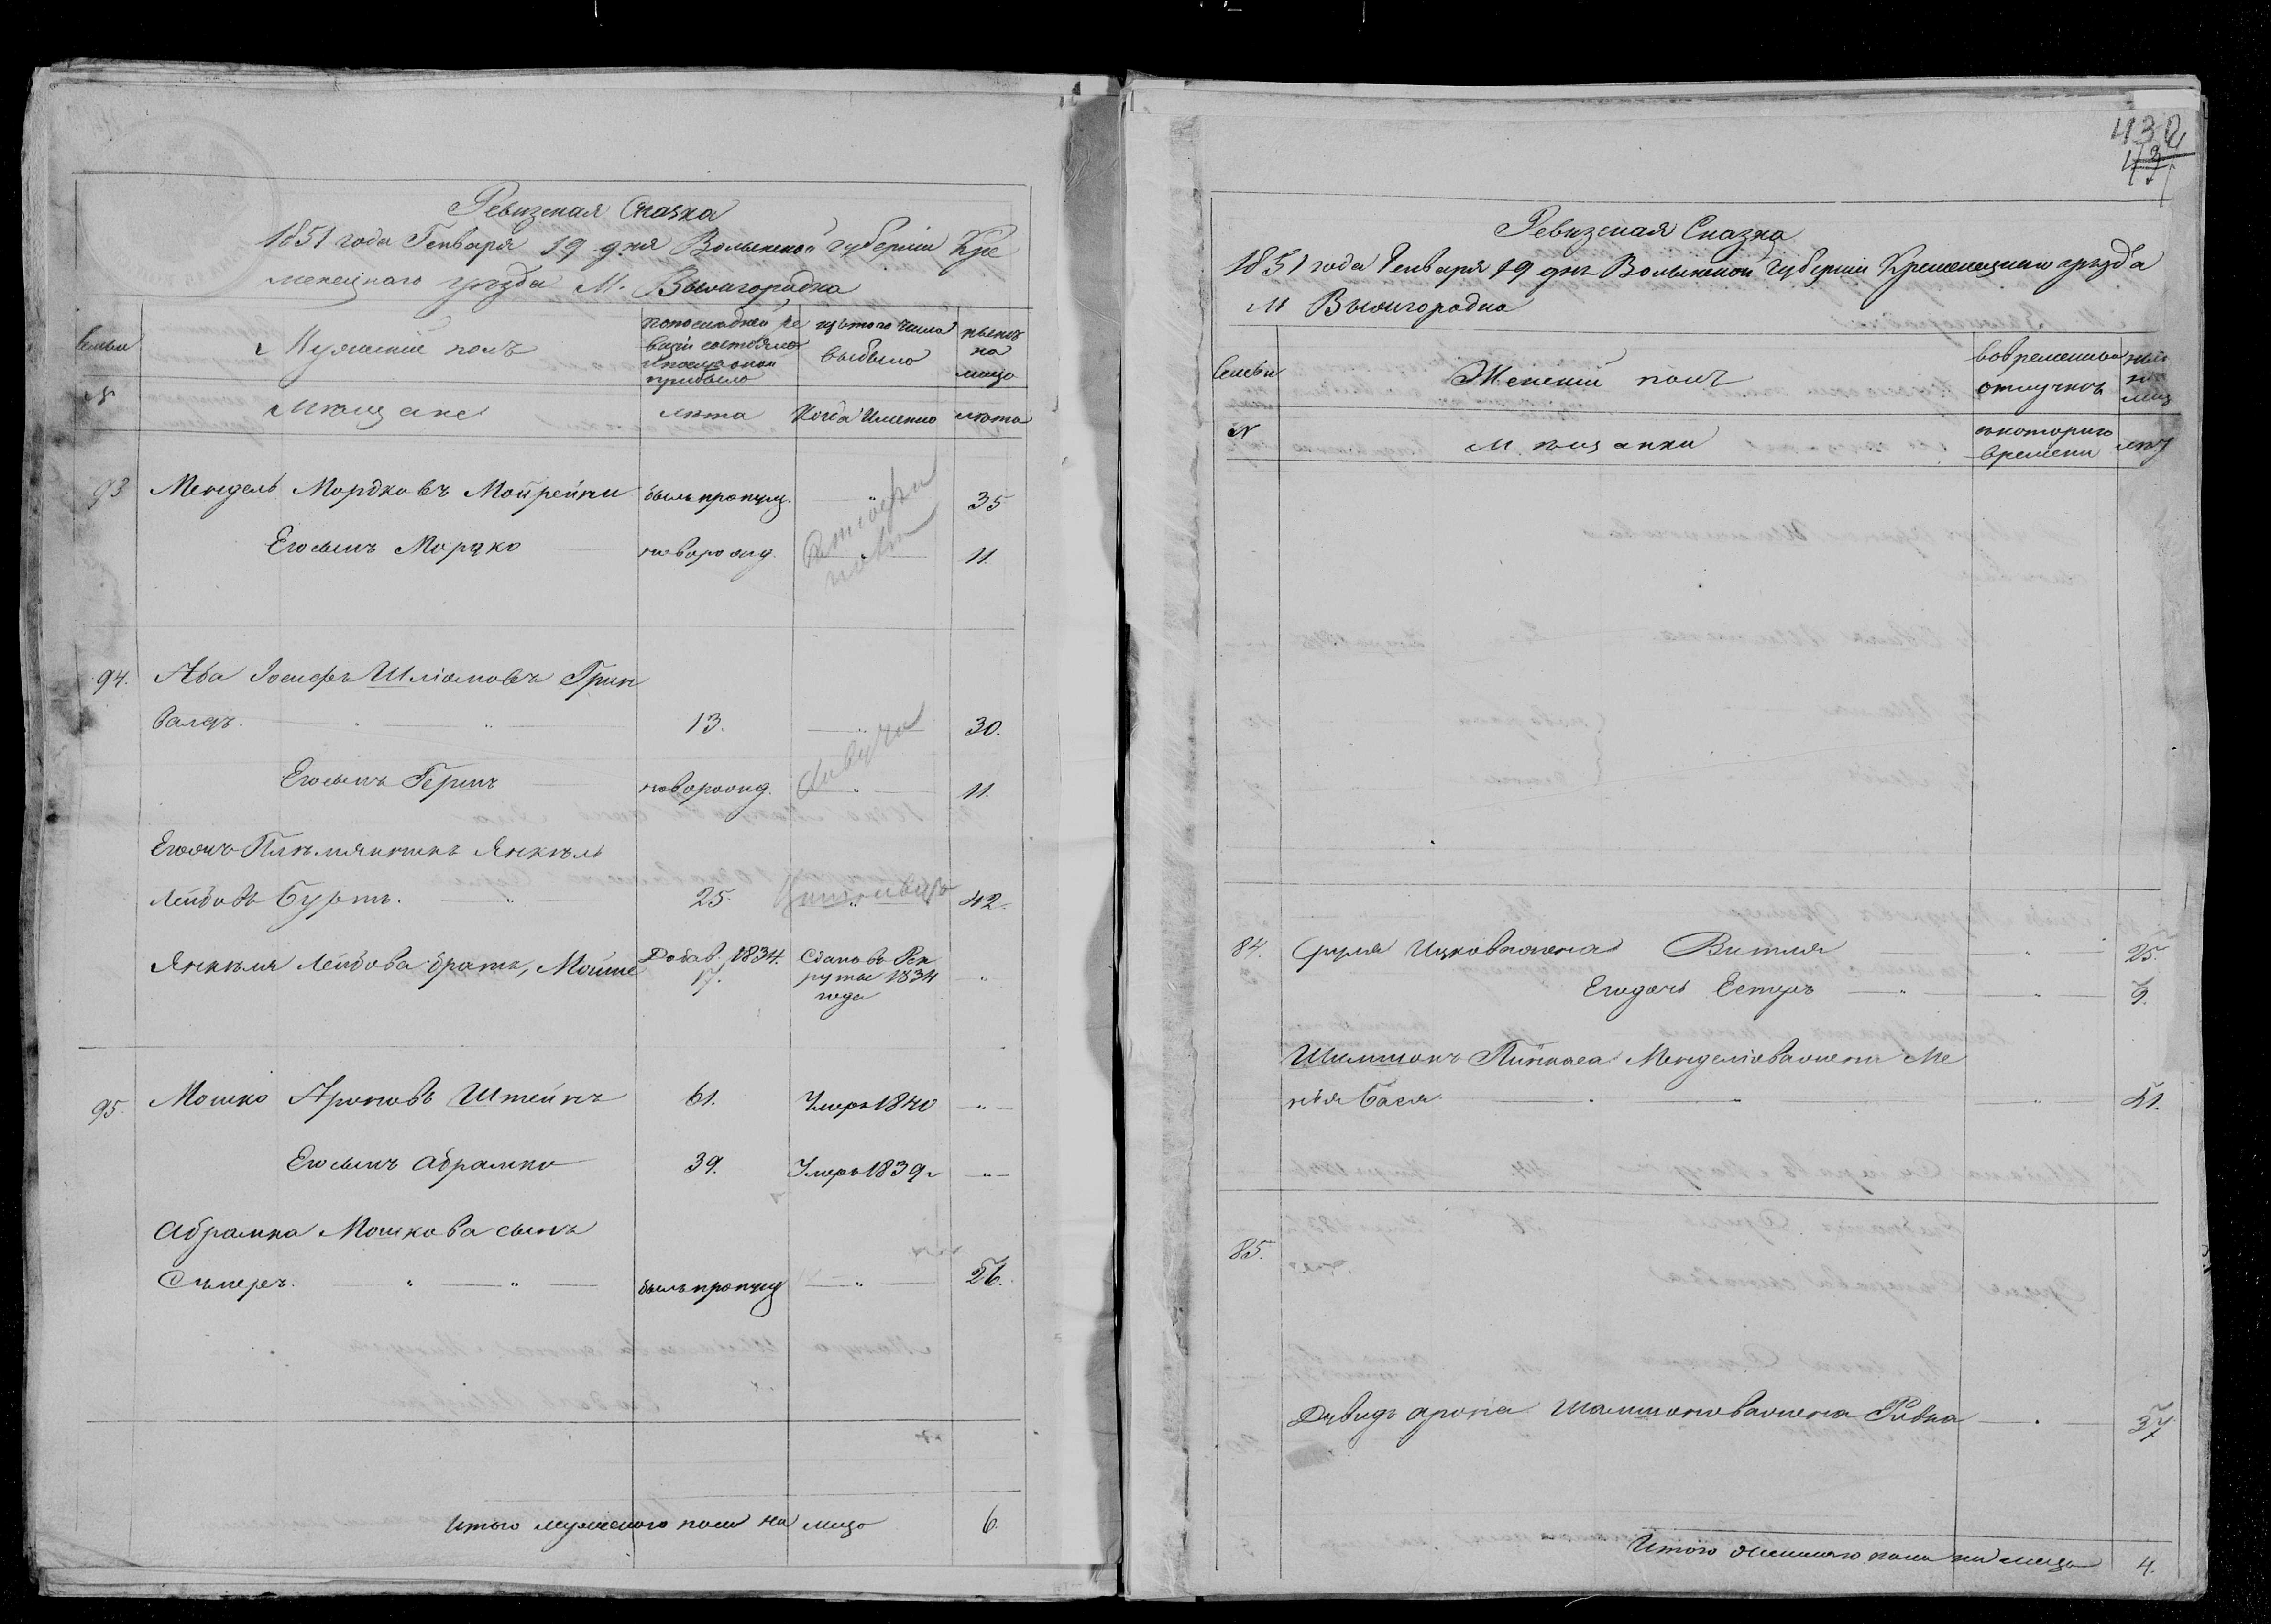 Ревизская Сказка
1851 года Генваря 19 дня Волынской губернии Кре
менецкаго уезда М. Вышгородка
Семьи
Мужеский полъ
по последней ре
визіи состояло
и после оной
прибыло
изъ того числа
выбыло
ныне
на
лицо
№
Мещане
лета
Когда Именно
лета
93
Мендель Мордковъ Мойрейни
былъ пропущ.
35
Его сынъ Мордко
новорожд.
11.
94.
Аба Іосифъ Шліомовъ Грин
валдъ.
13.
30.
Его сынъ Гершъ
новорожд.
11.
Племянникъ Янкель
Лейбовъ Буртъ.
25.
42.
Янкеля Лейбова братъ, Мошне
Добав. 1834.
17.
Сданъ въ Рек
руты 1834
года
95.
Мошко Ароновъ Штейнъ
61.
Умеръ 1840
Его сынъ Абрамко
39.
Умеръ 1839 г
Абрамка Мошкова сынъ
былъ пропущ
26.
Итого мужескаго пола на лицо
6.
432
Ревизская Сказка
1851 года Генваря 19 дня Волынской Губерніи Кременецкаго уезда
М Вышгородка
Семьи
Женский полъ
во временной
отлучке
№
Мещанки
съ котораго
времени
84.
Ицковажена Витля
25.
Его дочь Естеръ
9.
Шимшонъ Пинкаса Менделіова жена Ме
нья Бася
41.
85.
Давидъ Арона Шамшонова жена Ривка
37
Итого женскаго пола на лицо
4.